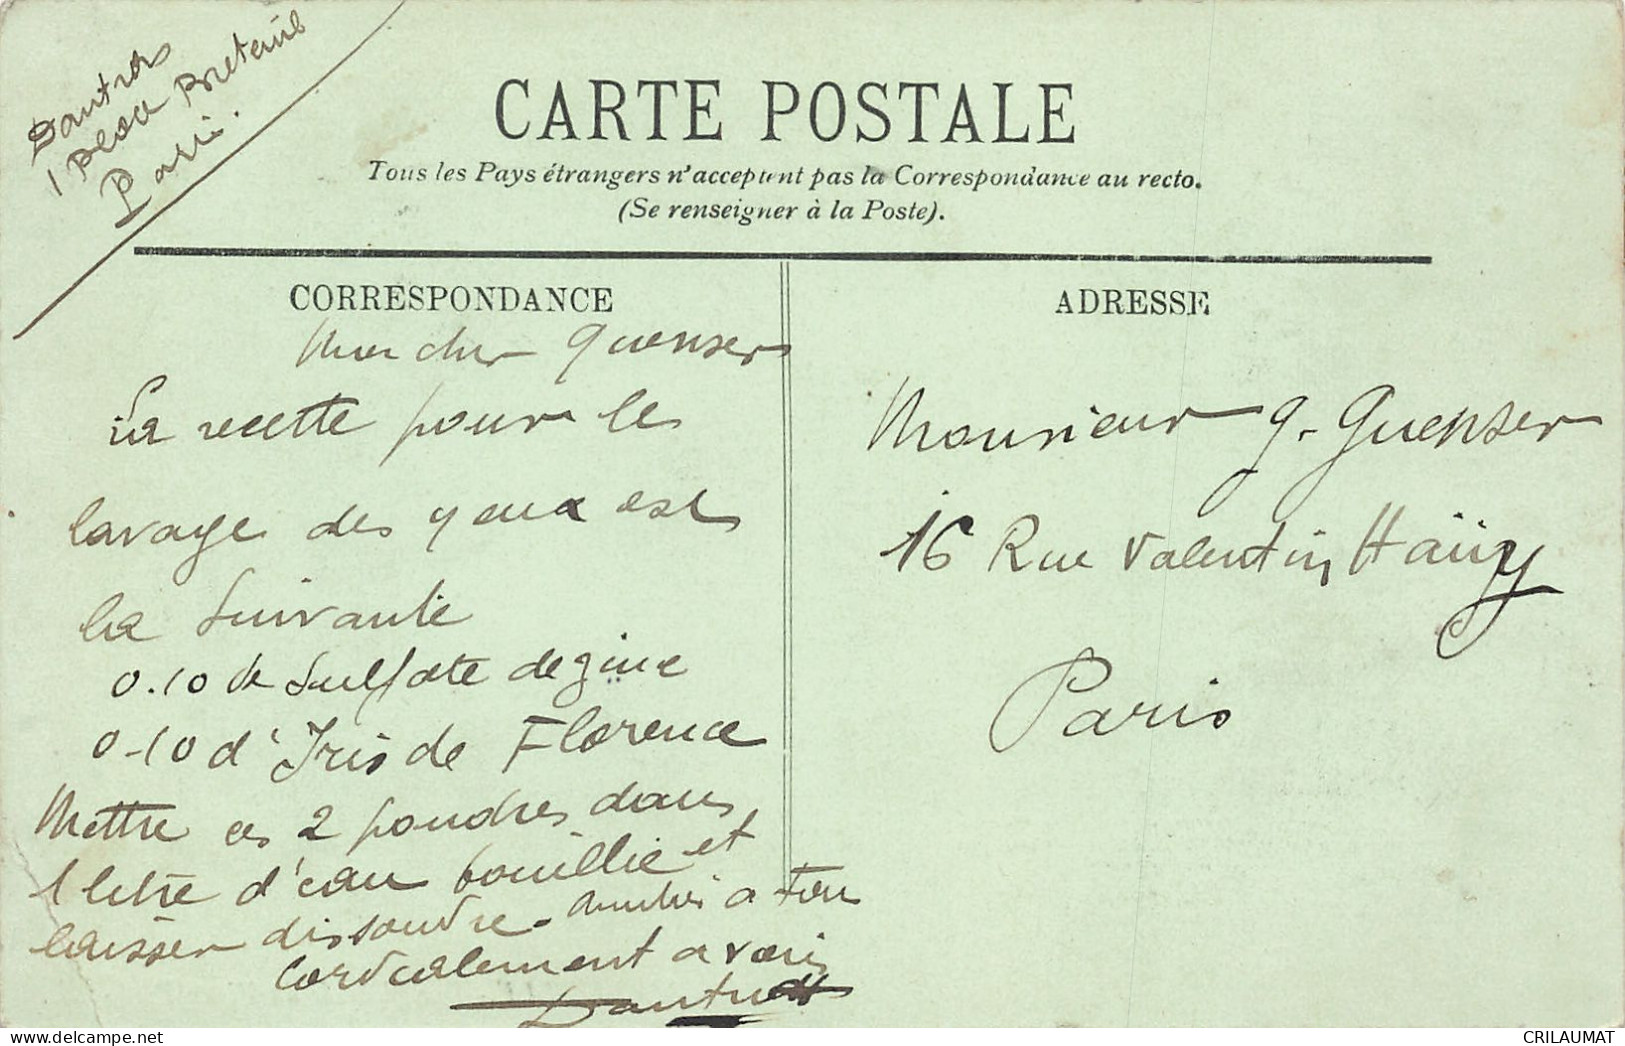 1 place Breteuil
Paris.
CARTE POSTALE
Tous les Pays étrangers n'acceptent pas la Correspondance au recto.
(Se renseigner à la Poste).
CORRESPONDANCE
Mon cher Guenser
La recette pour le
lavage des yeux est
la suivante
0.10 de Sulfate de zinc
0-10 d'Iris de Florence
Mettre ces 2 poudres dans
1 litre d'eau bouillie et
laisser dissoudre - amitiés a tous
Cordialement a vous
ADRESSE
Monsieur G. Guenser
16 Rue Valentin Haüy
Paris
CRILAUMAT